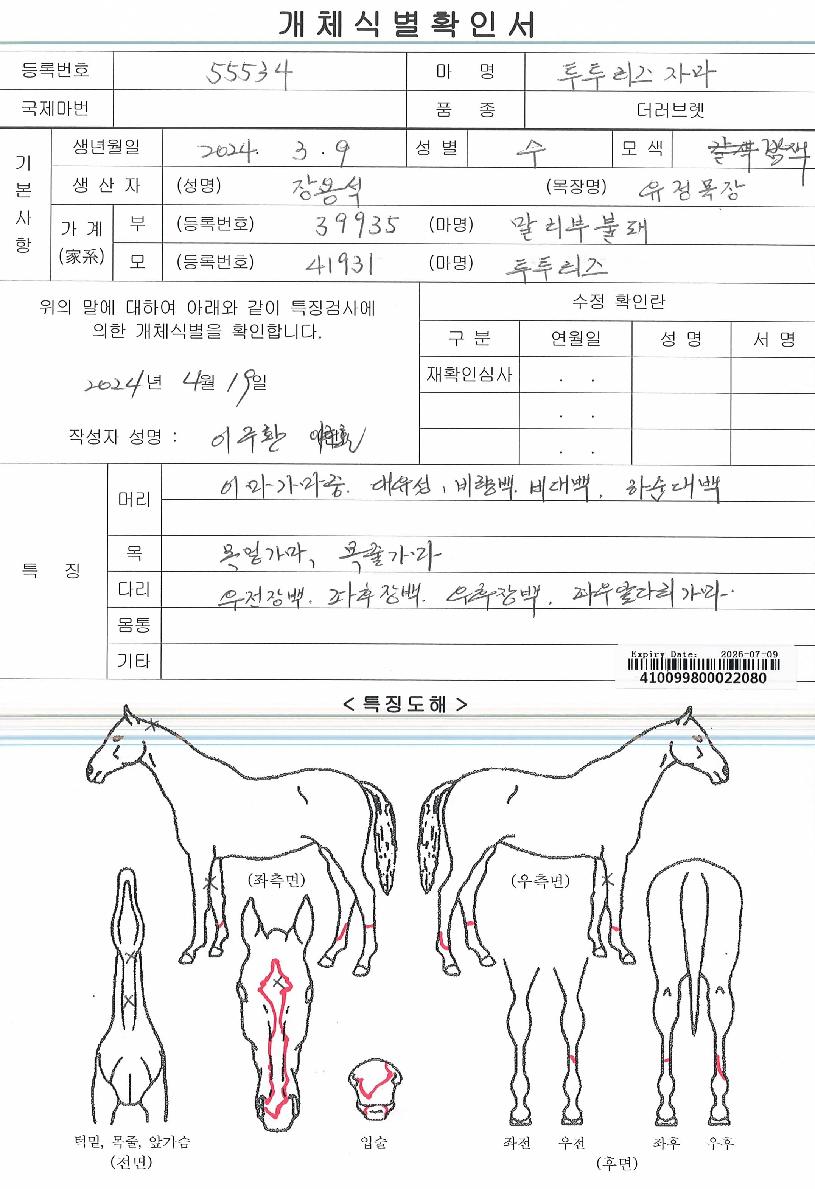 개체식별확인서
등록번호 55534 마 명 투투리즈 자마
국제마번 품 종 더러브렛
기본사항
생년월일 2024. 3. 9 성 별 수 모 색
생 산 자 (성명) 장용석 (목장명) 유정목장
가 계 (家系) 부 (등록번호) 39935 (마명) 말리부불패
모 (등록번호) 41931 (마명) 투투리즈
위의 말에 대하여 아래와 같이 특징검사에
의한 개체식별을 확인합니다.
2024년 4월 19일
작성자 성명 : 이주환
수정 확인란
구 분 연월일 성 명 서 명
재확인심사 . .
. .
. .
특 징
머리 이마가마중. 대유성, 비량백. 비대백, 하순대백
목 목일가마, 목줄가마
다리 우전장백. 좌후장백. 우후장백, 좌우앞다리가마.
몸통
기타
Expiry Date: 2026-07-09
410099800022080
< 특징도해 >
(좌측면) (우측면)
턱밑, 목줄, 앞가슴 입술 좌전 우전 좌후 우후
(전면) (후면)